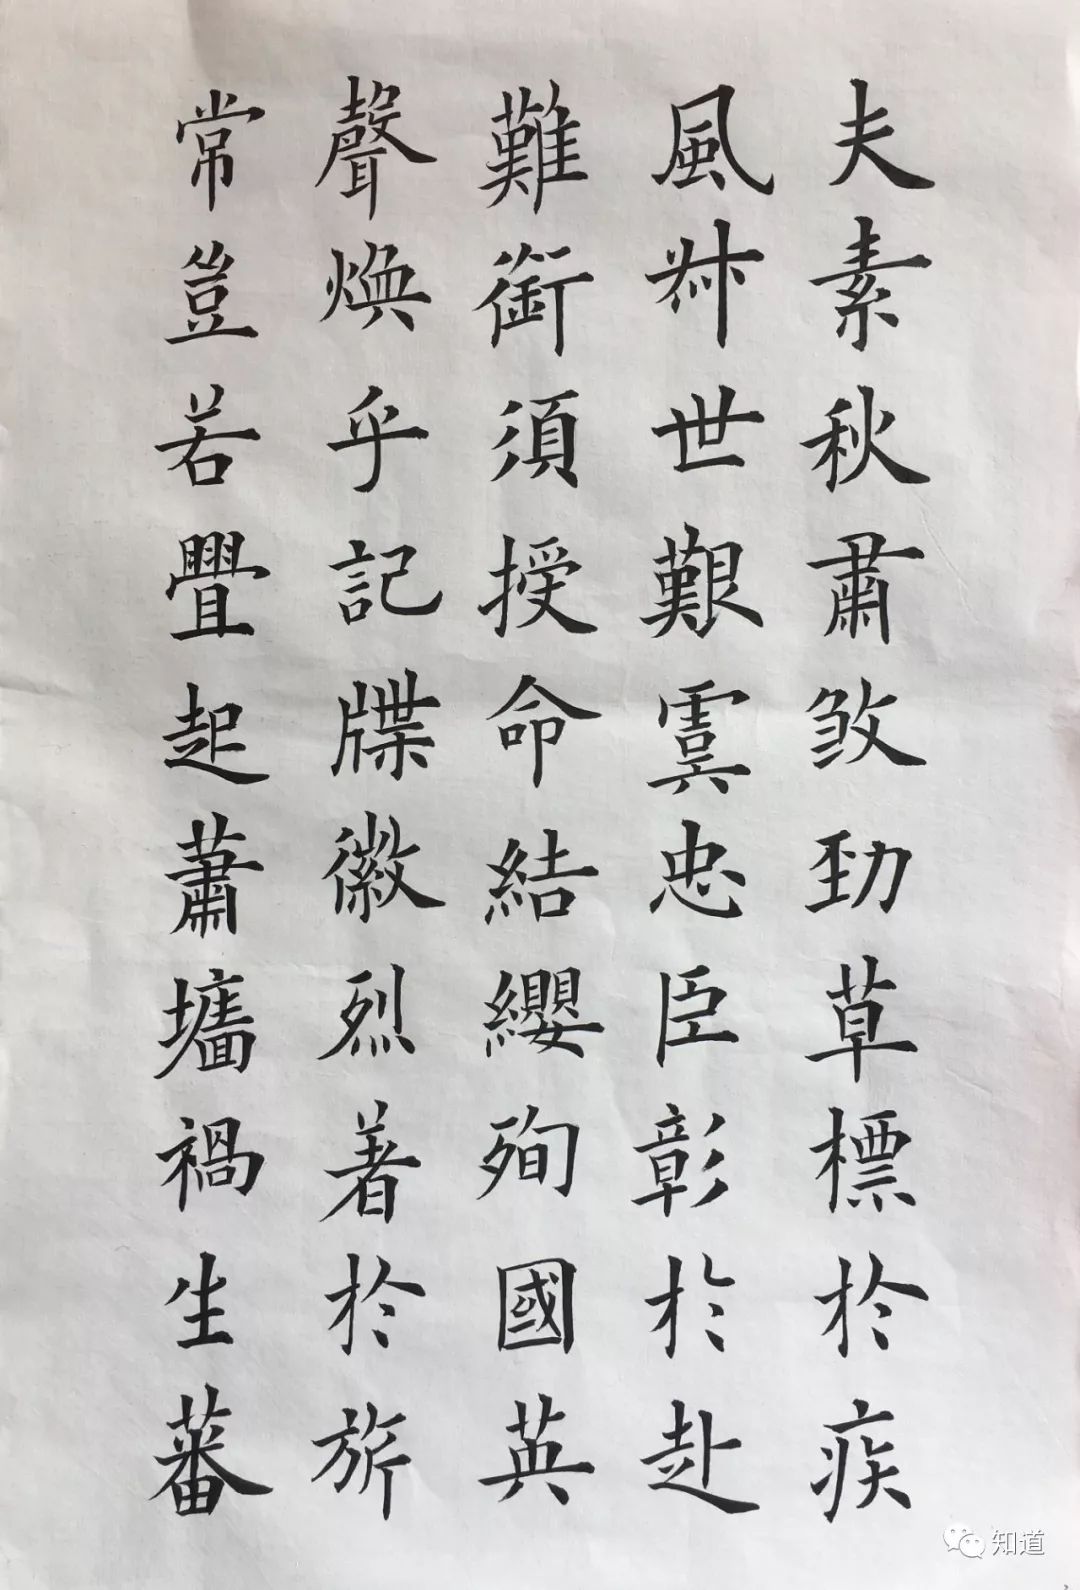 夫素秋肅煞勁草標於疾
風叔世艱虞忠臣彰於赴
難銜須授命結纓殉國英
聲煥乎記牒徽烈著於旂
常豈若疊起蕭墻禍生蕃
知道